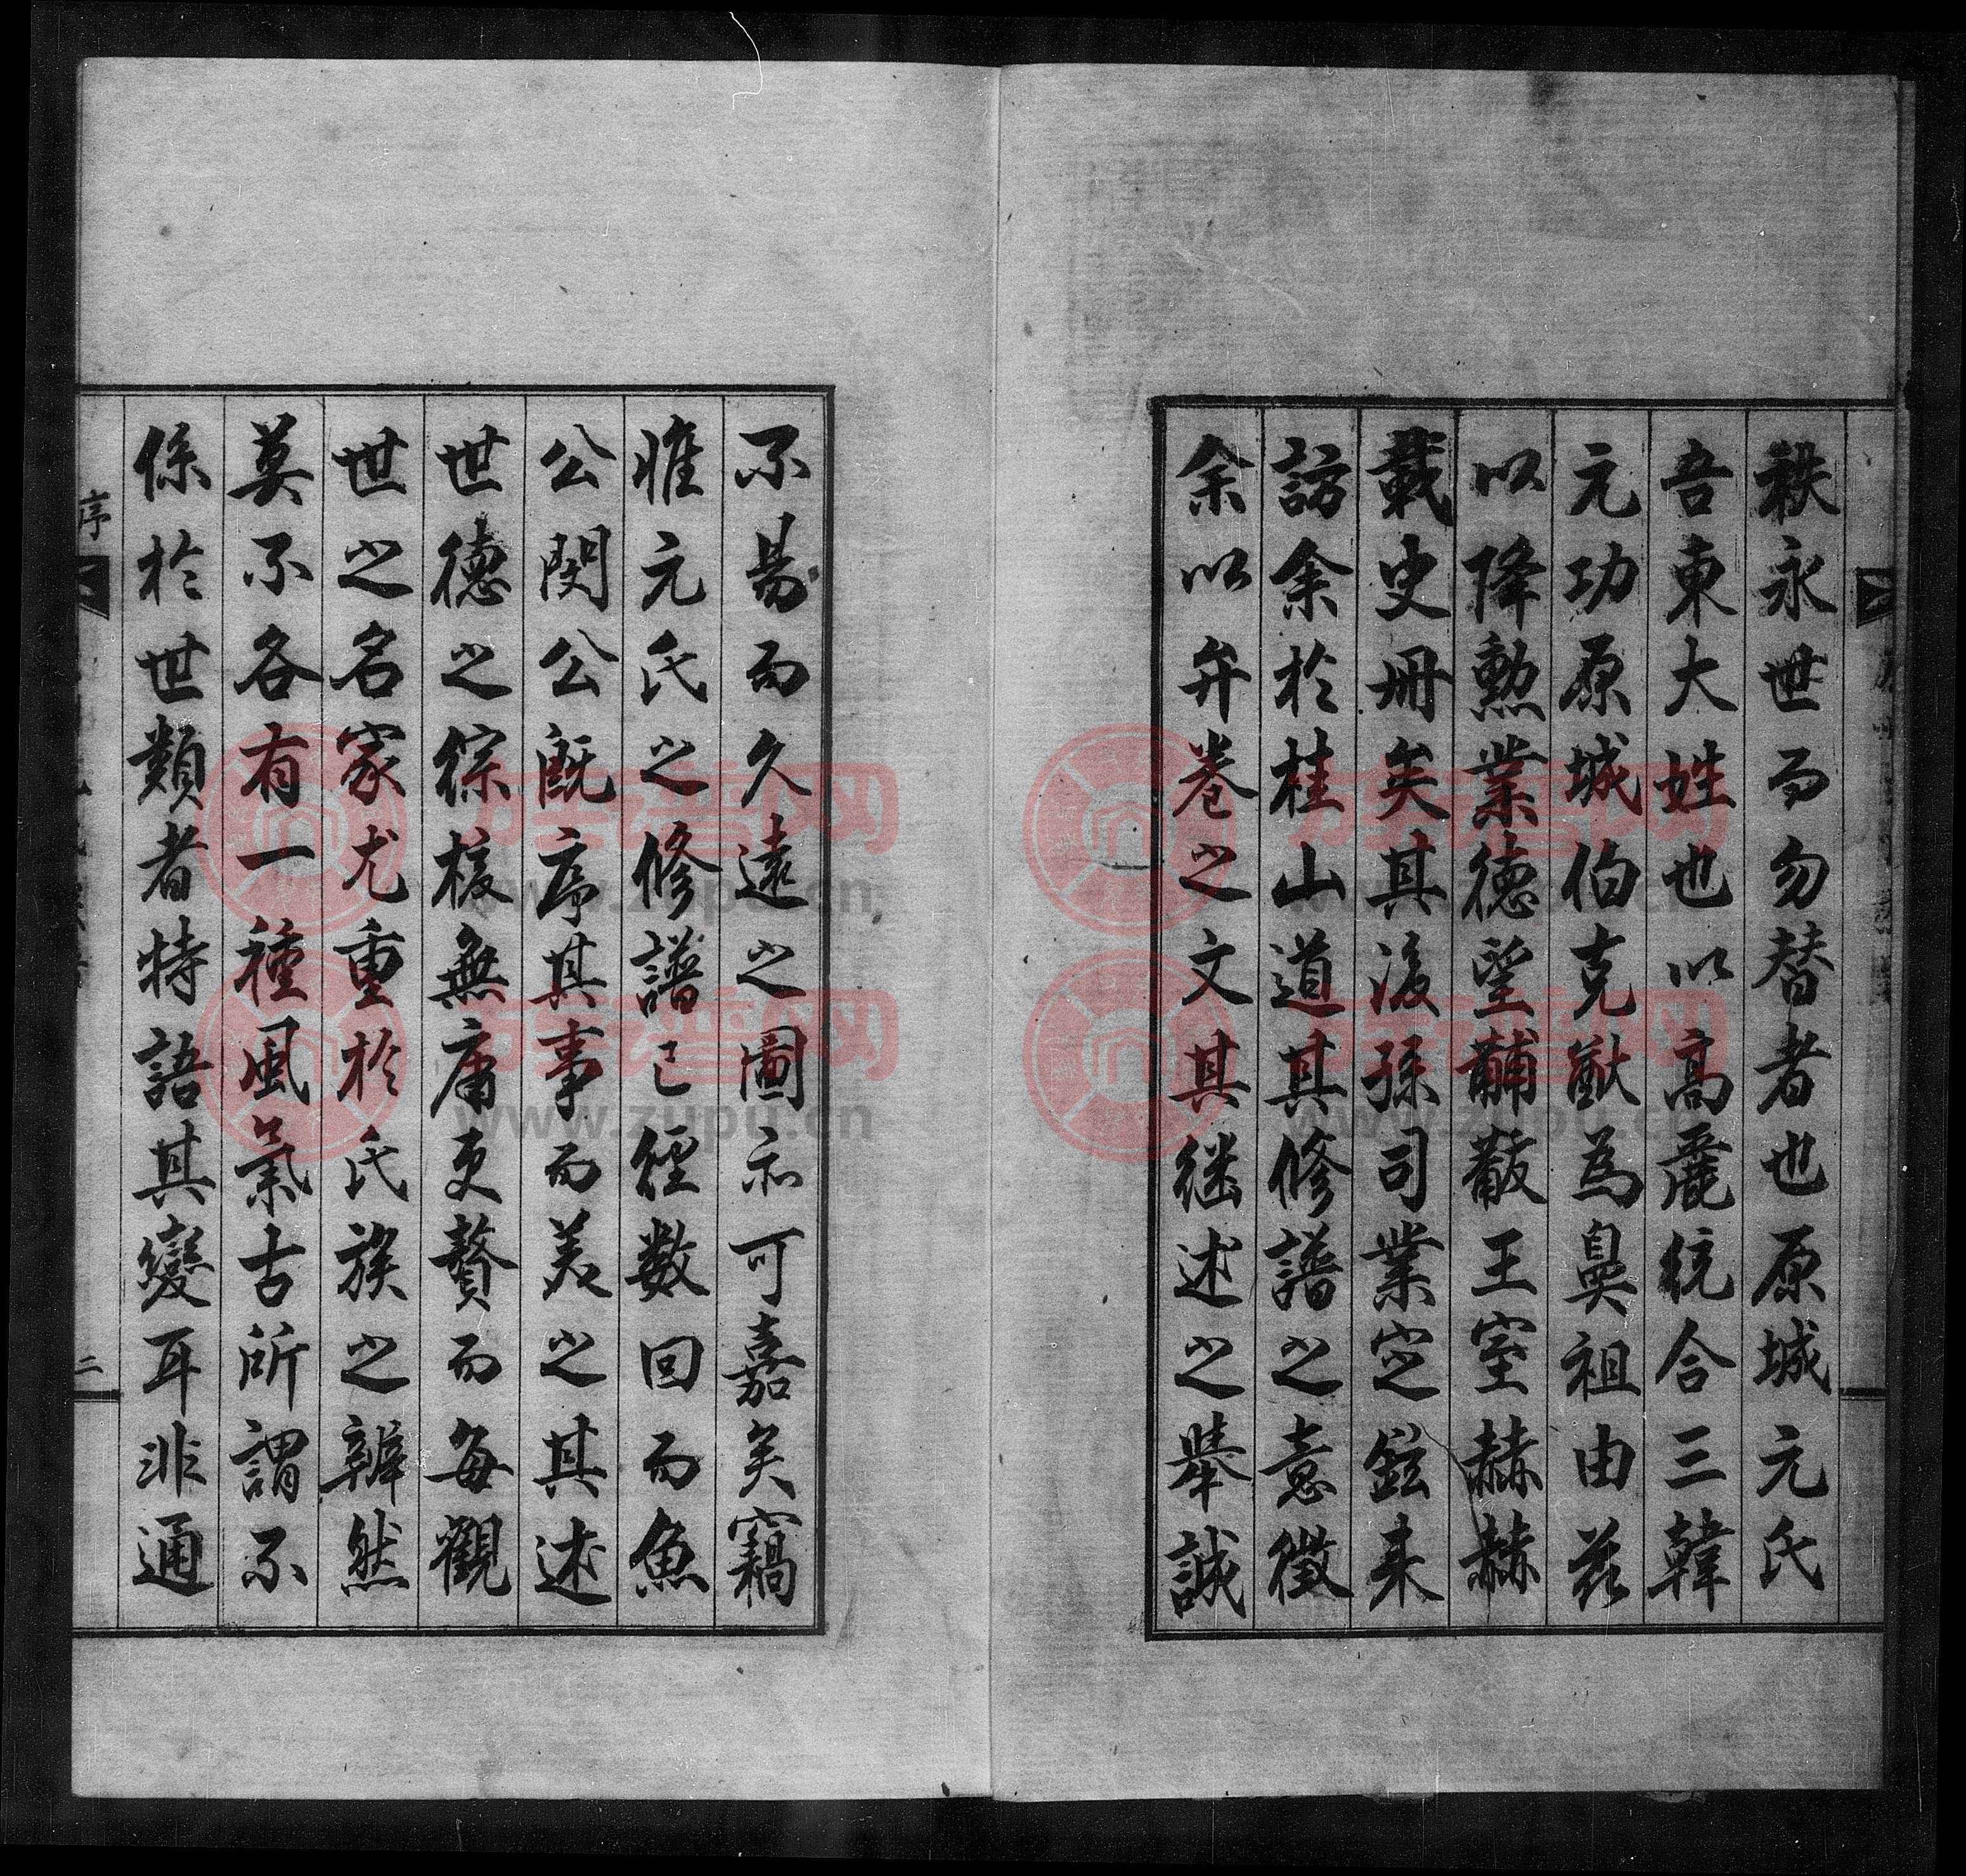 秩永世而勿替者也原城元氏
吾東大姓也以高麗統合三韓
元功原城伯克猷為鼻祖由玆
以降勲業德望黼黻王室赫赫
載史冊矣其後孫司業定鉉来
訪余於桂山道其修譜之意徵
余以弁卷之文其継述之舉誠
不易而久遠之圖亦可嘉矣竊
惟元氏之修譜已經數回而魚
公閔公既序其事而美之其述
世德之綜核無庸更贅而每觀
世之名家尤重於氏族之辨然
莫不各有一種風氣古所謂不
係於世類者特語其變耳非通
序
二
族谱网
www.zupu.cn
族谱网
www.zupu.cn
族谱网
www.zupu.cn
族谱网
www.zupu.cn